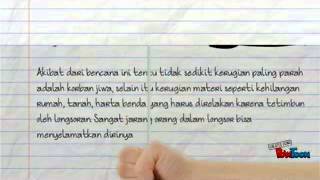 Akibat dari bencana ini tentu tidak sedikit kerugian paling parah
adalah korban jiwa, selain itu kerugian materi seperti kehilangan
rumah, tanah, harta benda yang harus direlakan karena tertimbun
oleh longsoran. Sangat jarang orang dalam longsor bisa
menyelamatkan dirinya
PowToon